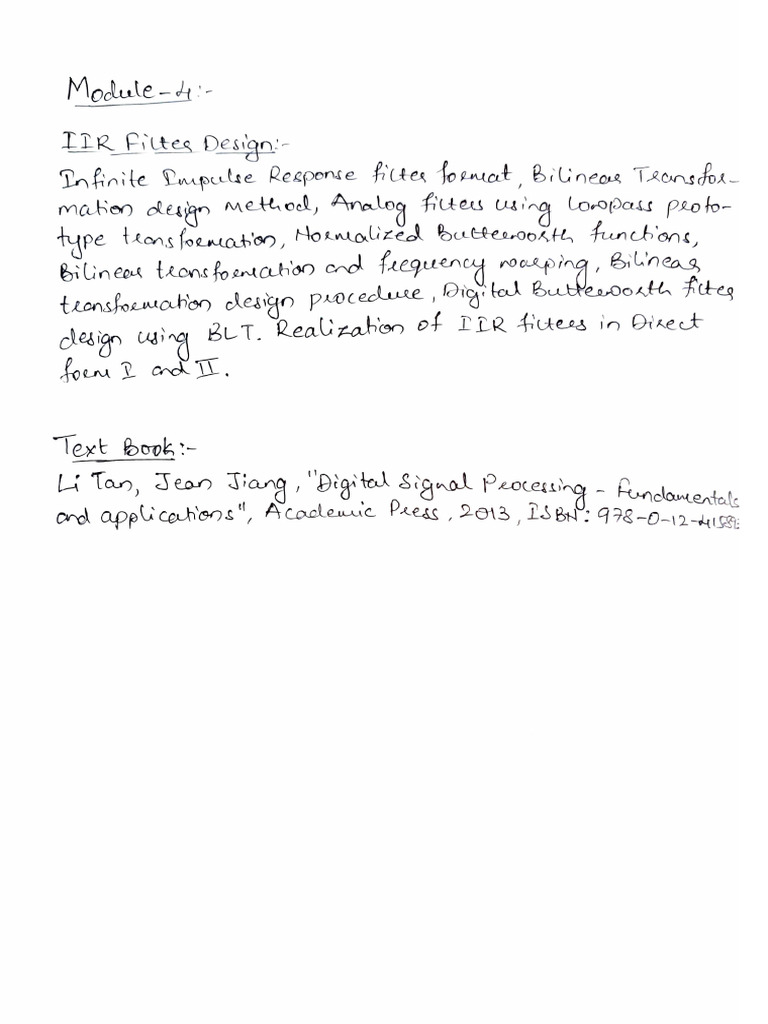 Module-4:-
IIR Filter Design:-
Infinite Impulse Response filter format, Bilinear Transfor-
mation design method, Analog filters using lowpass proto-
type transformation, Normalized Butterworth functions,
Bilinear transformation and frequency warping, Bilinear
transformation design procedure, Digital Butterworth filter
design using BLT. Realization of IIR filters in Direct
form I and II.
Text Book:-
Li Tan, Jean Jiang, "Digital Signal Processing - Fundamentals
and applications", Academic Press, 2013, ISBN: